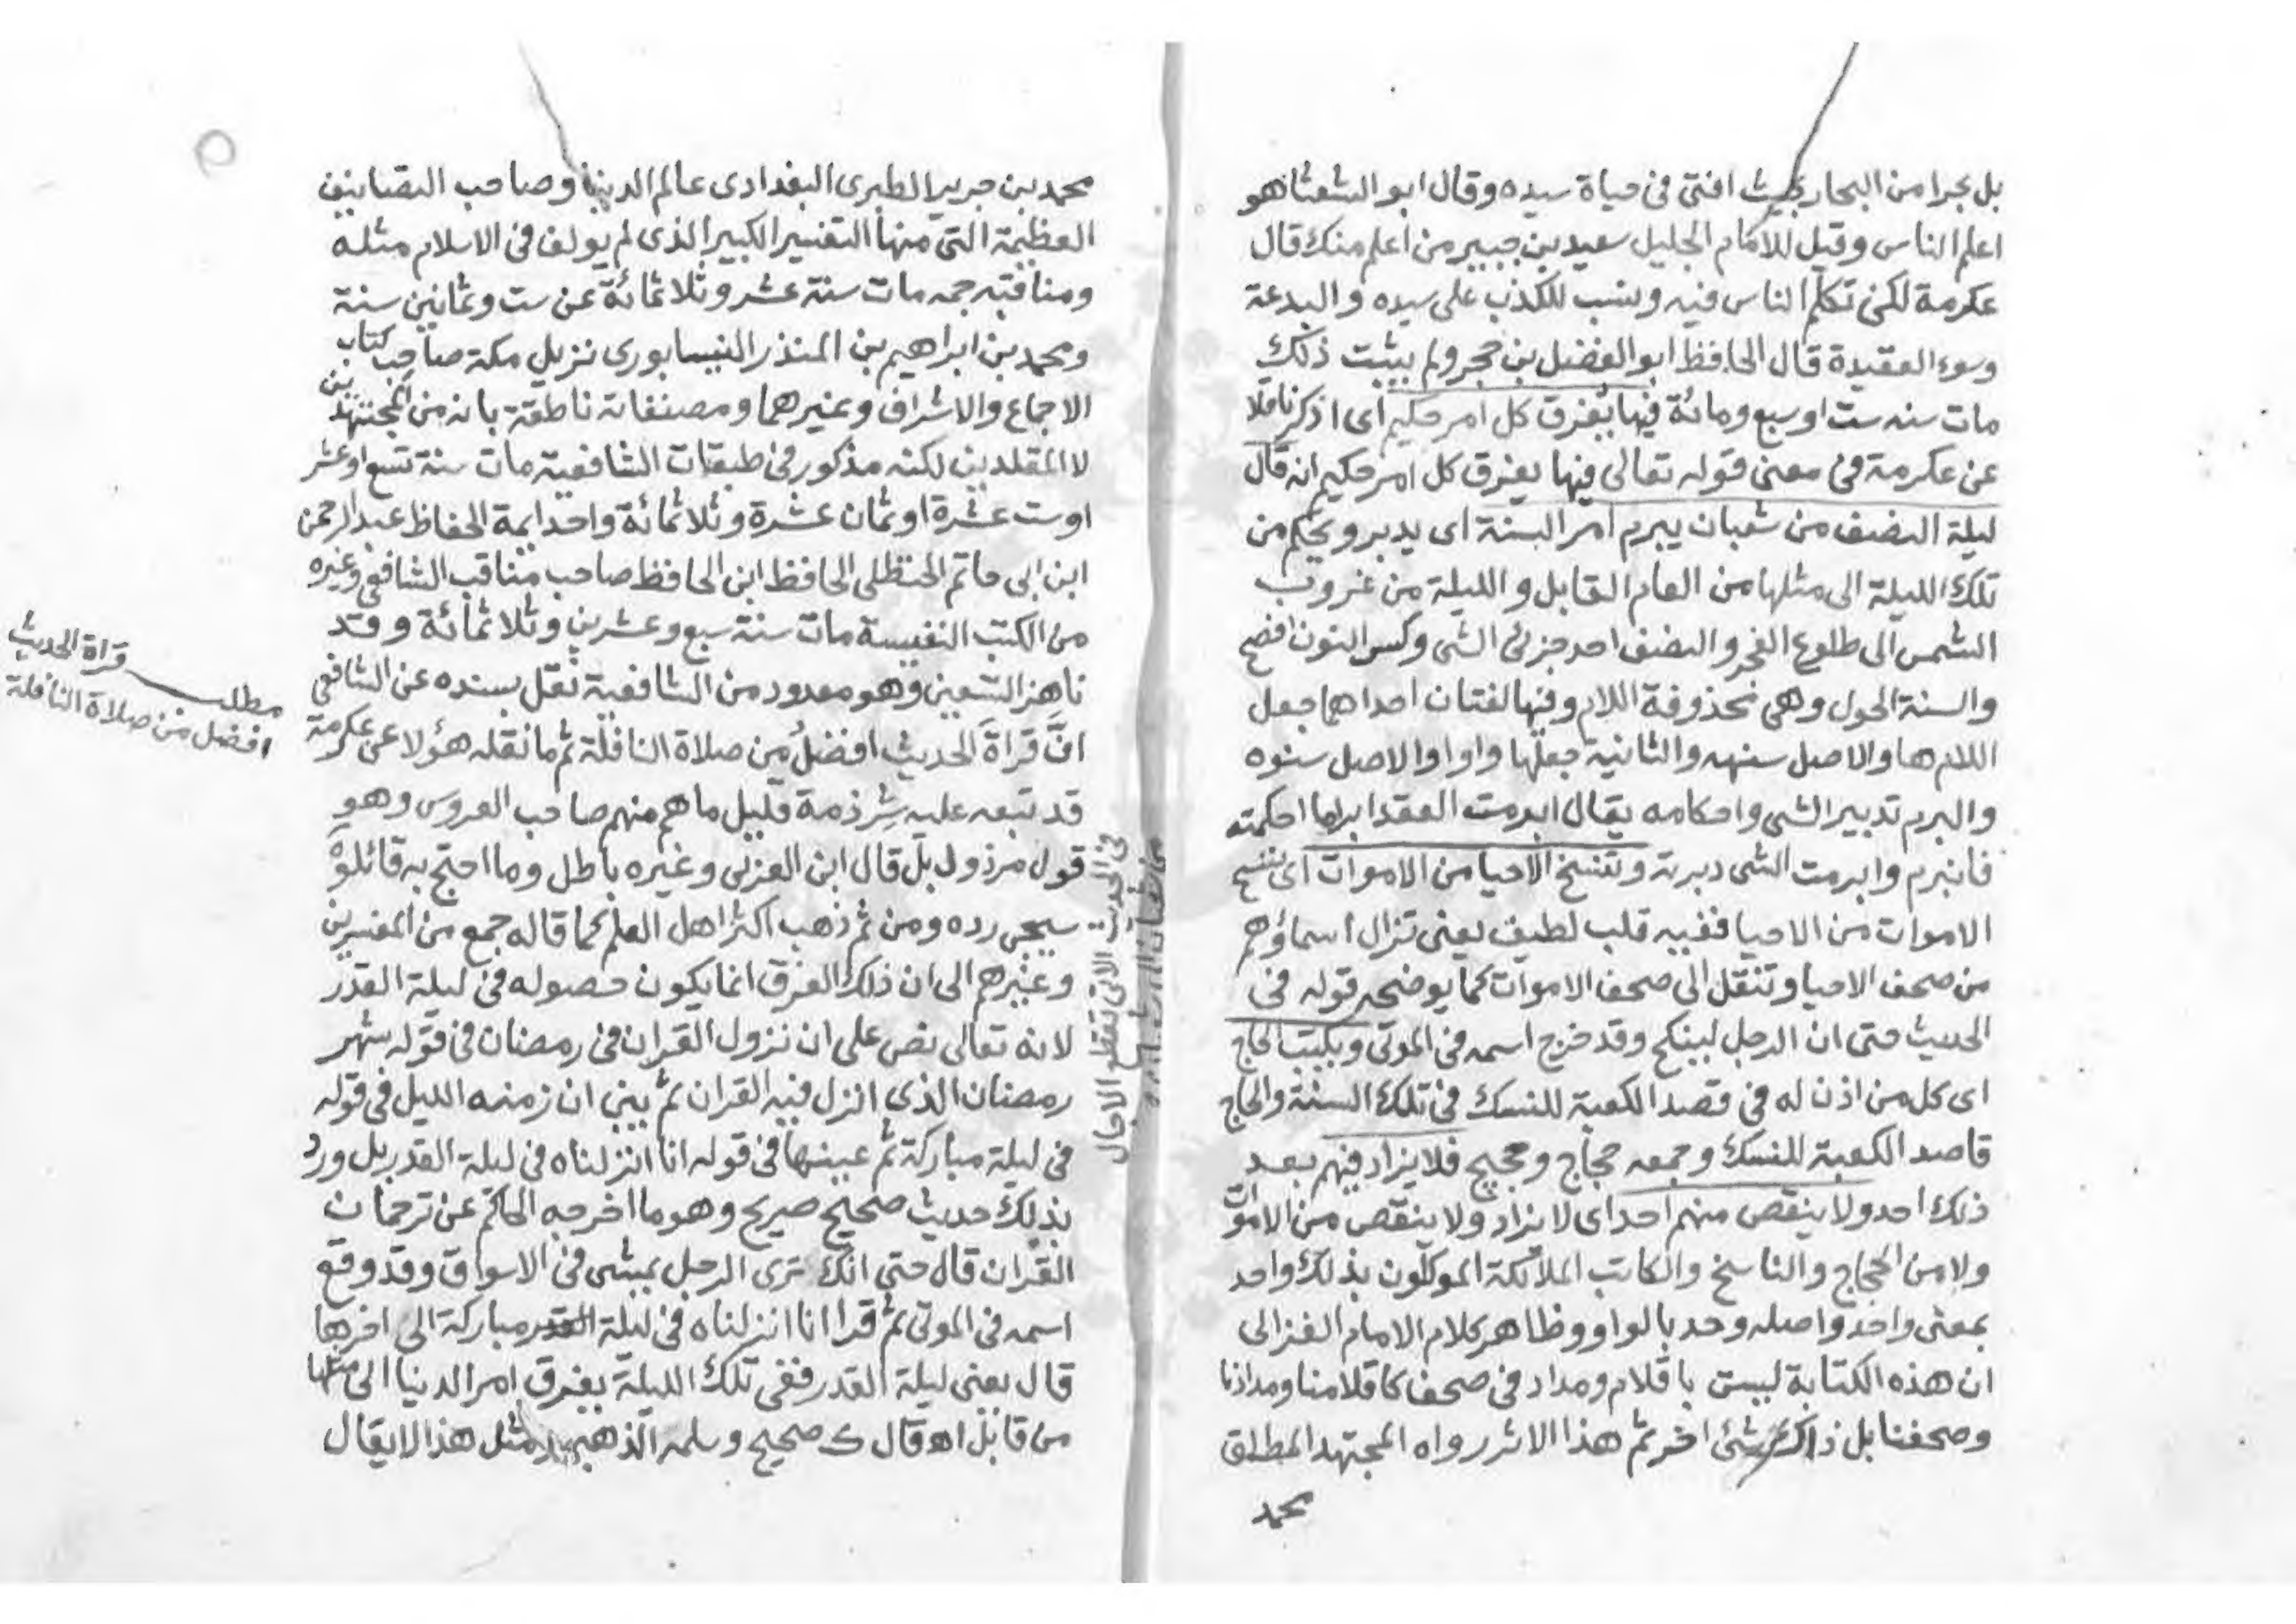 بل بحرا من البحار بحيث افتى فى حياة سيده وقال ابو الشعثا هو
اعلم الناس وقيل للامام الجليل سعيد بن جبير من اعلم منك قال
عكرمة لكن تكلم الناس فيه ونسب للكذب على سيده والبدعة
وسوء العقيدة قال الحافظ ابو الفضل بن حجر ولم يثبت ذلك
مات سنه ست او سبع ومائة فيها يفرق كل امر حكيم اى اذكر ناقلا
عن عكرمة فى معنى قوله تعالى فيها يفرق كل امر حكيم انه قال
ليلة النصف من شعبان يبرم امر السنة اى يدبر ويحكم من
تلك الليلة الى مثلها من العام القابل والليلة من غروب
الشمس الى طلوع الفجر والنصف احد جزئى الشى وكسر النون افصح
والسنة الحول وهى محذوفة اللام وفيها لغتان احداهما جعل
اللام ها والاصل سنهه والثانية جعلها واوا والاصل سنوه
والبرم تدبير الشى واحكامه يقال ابرمت العقد ابراما احكمته
فانبرم وابرمت الشى دبرته وتنسخ الاحيا من الاموات اى تنسخ
الاموات من الاحيا ففيه قلب لطيف يعنى تزال اسماؤهم
من صحف الاحيا وتنقل الى صحف الاموات كما يوضحه قوله فى
الحديث حتى ان الرجل لينكح وقد خرج اسمه فى الموتى ويكتب الحاج
اى كل من اذن له فى قصد الكعبة للنسك فى تلك السنة والحاج
قاصد الكعبة للنسك وجمعه حجاج وحجيج فلا يزاد فيهم بعد
ذلك احد ولا ينقص منهم احد اى لا يزاد ولا ينقص من الاموات
ولا من الحجاج والناسخ والكاتب الملائكة الموكلون بذلك واحد
بمعنى واحد واصله وحد بالواو وظاهر كلام الامام الغزالى
ان هذه الكتابة ليست باقلام ومداد فى صحف كاقلامنا ومدادنا
وصحفنا بل ذلك شئ اخر ثم هذا الاثر رواه المجتهد المطلق
محمد
محمد بن جرير الطبرى البغدادى عالم الدنيا وصاحب التصانيف
العظيمة التى منها التفسير الكبير الذى لم يولف فى الاسلام مثله
ومناقبه جمه مات سنة عشر وثلاثمائة عن ست وثمانين سنة
ومحمد بن ابراهيم بن المنذر النيسابورى نزيل مكة صاحب كتاب
الاجماع والاشراف وغيرهما ومصنفاته ناطقة بانه من المجتهدين
لا المقلدين لكنه مذكور فى طبقات الشافعية مات سنة تسع او عشر
او ست عشرة او ثمان عشرة وثلاثمائة واحد ايمة الحفاظ عبد الرحمن
ابن ابى حاتم الحنظلى الحافظ ابن الحافظ صاحب مناقب الشافعى وغيره
من الكتب النفيسة مات سنة سبع وعشرين وثلاثمائة وقد
ناهز التسعين وهو معدود من الشافعية نقل بسنده عن الشافعى
ان قراة الحديث افضل من صلاة النافلة ثم ما نقله هؤلا عن عكرمة
مطلب قراة الحديث
افضل من صلاة النافلة
قد تبعه عليه شرذمة قليل ما هم منهم صاحب العروس وهو
قول مرذول بل قال ابن العربى وغيره باطل وما احتج به قائلوه
سيجى رده ومن ثم ذهب اكثر اهل العلم كما قاله جمع من المفسرين
وغيرهم الى ان ذلك الفرق انما يكون حصوله فى ليلة القدر
لانه تعالى نص على ان نزول القران فى رمضان فى قوله شهر
رمضان الذى انزل فيه القران ثم بين ان زمنه الليل فى قوله
فى ليلة مباركة ثم عينها فى قوله انا انزلناه فى ليلة القدر بل ورد
بذلك حديث صحيح صريح وهو ما اخرجه الحاكم عن ترجمان
القران قال حتى انك ترى الرجل يمشى فى الاسواق وقد وقع
اسمه فى الموتى ثم قرا انا انزلناه فى ليلة مباركة الى اخرها
قال يعنى ليلة القدر ففى تلك الليلة يفرق امر الدنيا الى مثلها
من قابل اه قال ك صحيح وسلمه الذهبى مثل هذا لا يقال
فى الحديث الاتى تقطع الاجال